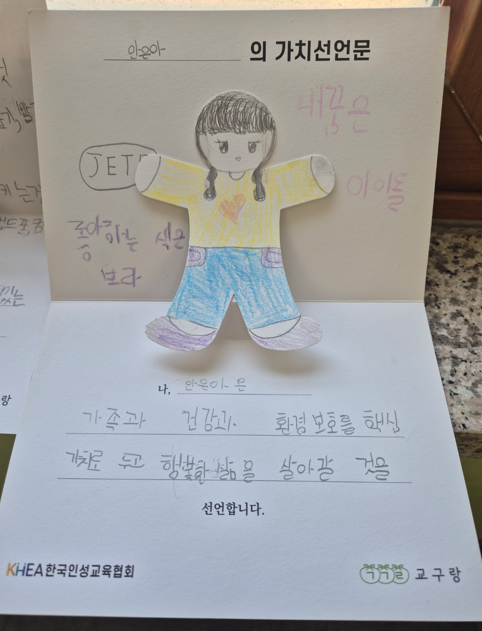 안은아 의 가치선언문
내꿈은
아이돌
좋아하는 색은
보라
나, 안은아 은
가족과 건강과 환경보호를 핵심
가치로 두고 행복한 삶을 살아갈 것을
선언합니다.
KHEA한국인성교육협회
교구랑